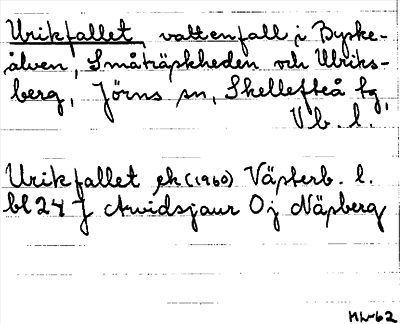 Urikfallet, vattenfall i Byske-
älven, Småträskheden och Ulriks-
berg, Jörns sn, Skellefteå tg,
Vb. l.
Urikfallet ek (1960) Västerb. l.
bl 24 J Arvidsjaur Oj Näsberg
HL-62